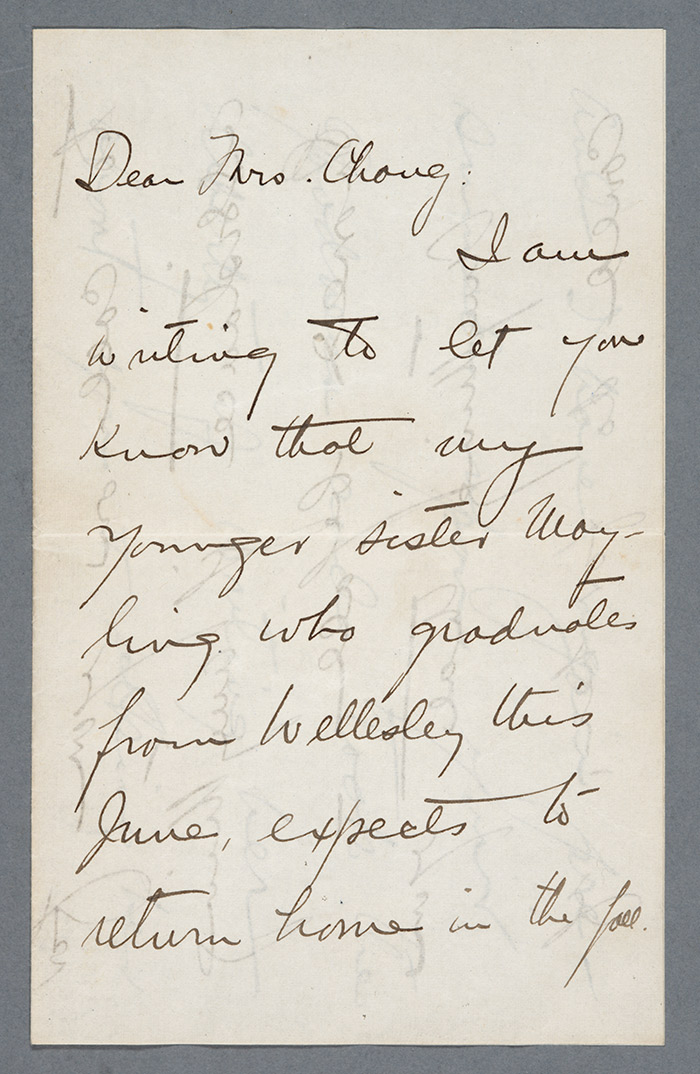 Dear Mrs. Chong:
I am
writing to let you
know that my
younger sister May-
ling who graduates
from Wellesley this
June, expects to
return home in the fall.